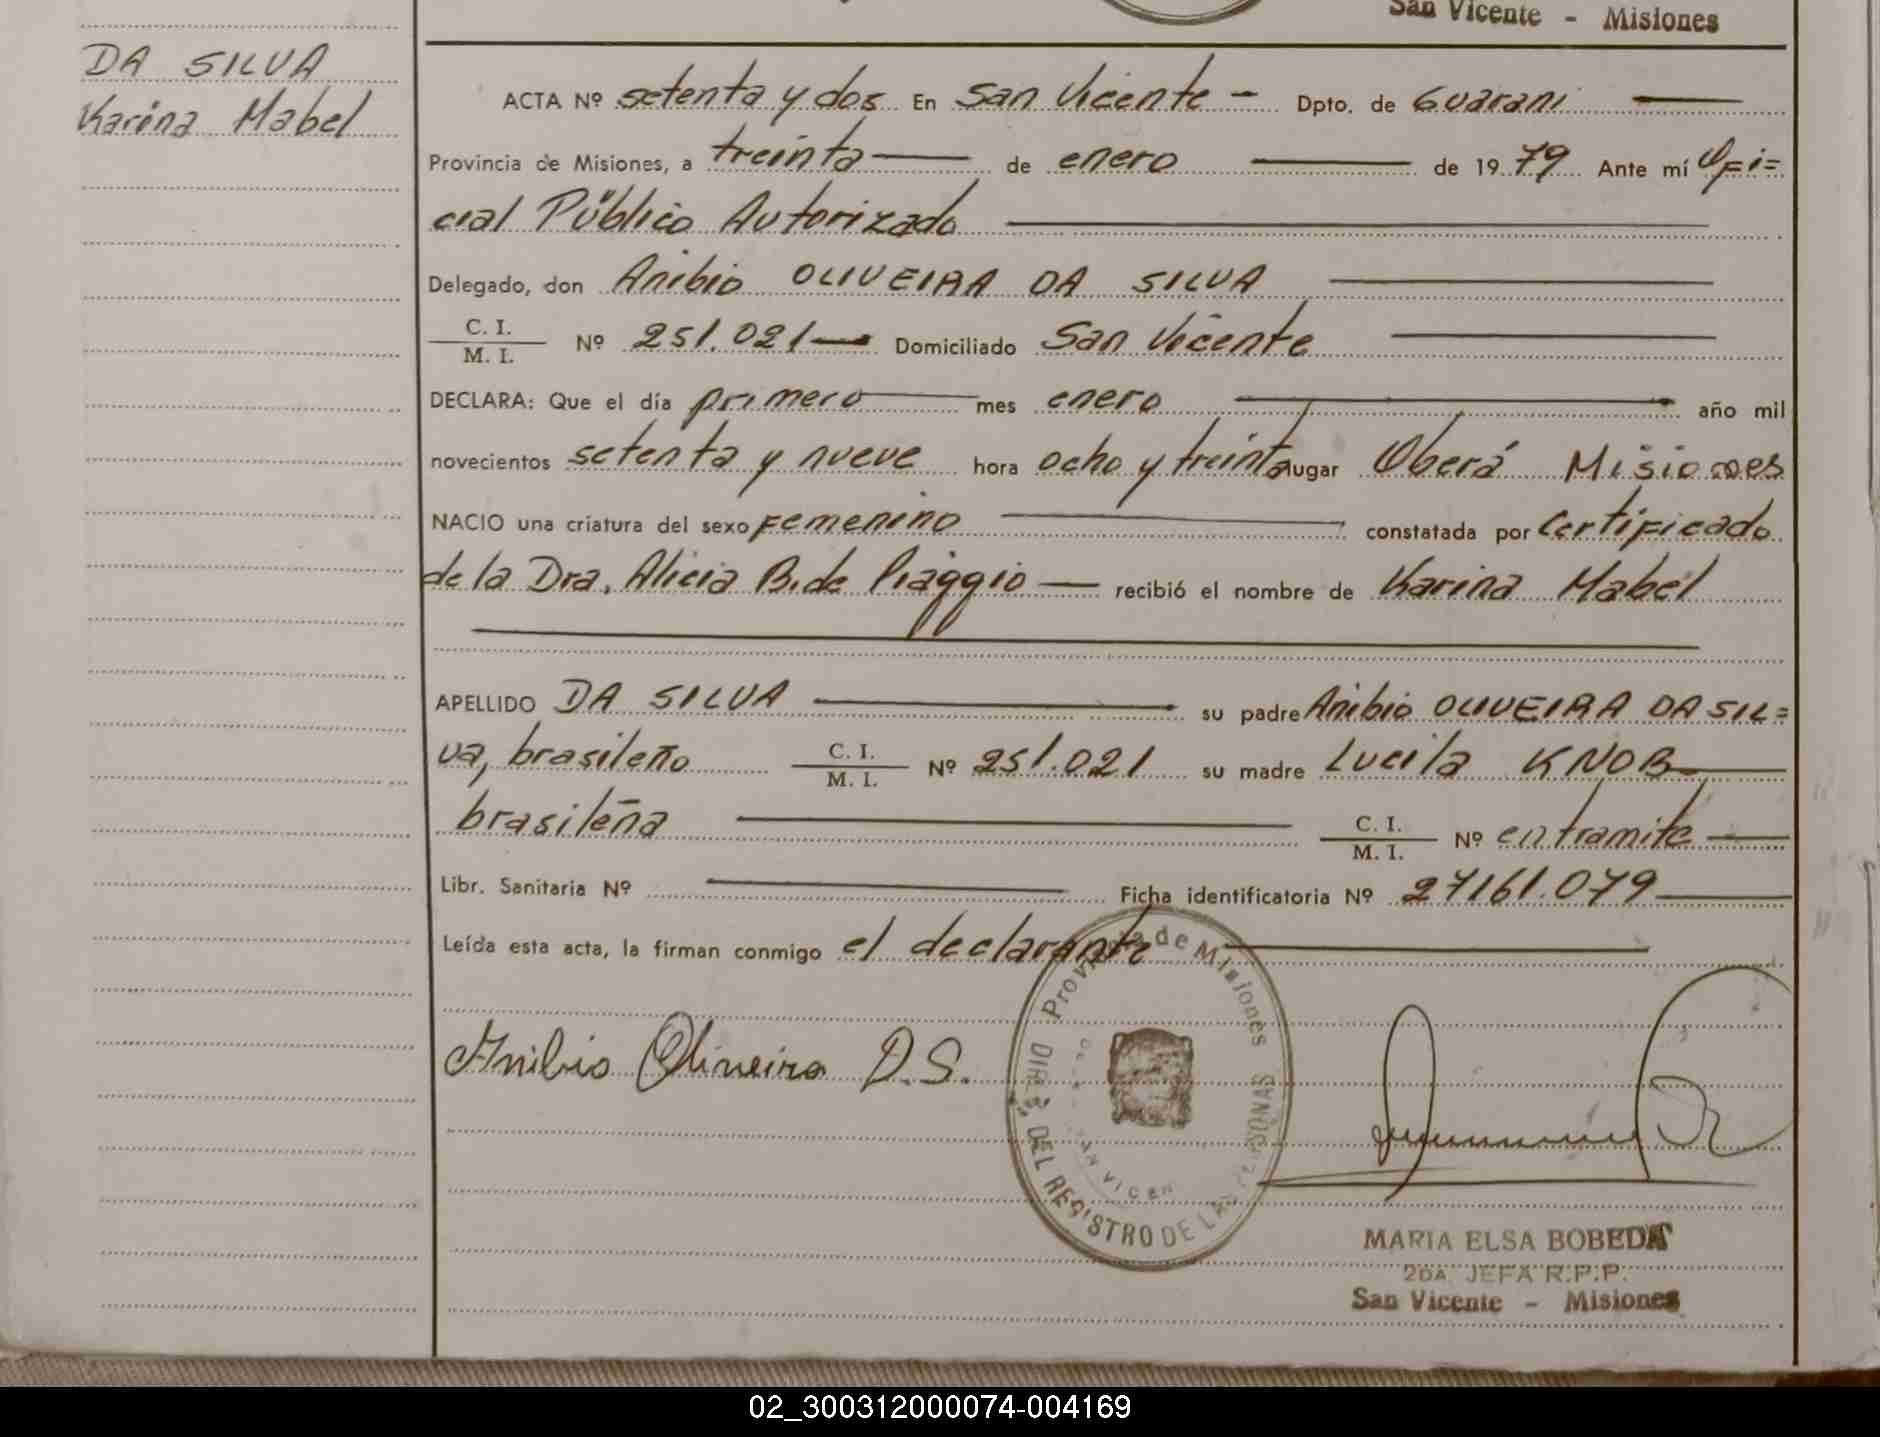 San Vicente - Misiones
DA SILVA
Karina Mabel
ACTA Nº setenta y dos En San Vicente - Dpto. de Guarani
Provincia de Misiones, a treinta de enero de 1979 Ante mí Ofi=
cial Público Autorizado
Delegado, don Anibio OLIVEIRA DA SILVA
C. I.
M. I. Nº 251.021 Domiciliado San Vicente
DECLARA: Que el día primero mes enero año mil
novecientos setenta y nueve hora ocho y treinta lugar Oberá Misiones
NACIO una criatura del sexo femenino constatada por Certificado
de la Dra. Alicia B. de Piaggio recibió el nombre de Karina Mabel
APELLIDO DA SILVA su padre Anibio OLIVEIRA DA SIL=
va, brasileño C. I.
M. I. Nº 251.021 su madre Lucila KNOB
brasileña C. I.
M. I. Nº en tramite
Libr. Sanitaria Nº Ficha identificatoria Nº 27161.079
Leída esta acta, la firman conmigo el declarante
Provincia de Misiones
DEL REGISTRO DE LAS PERSONAS
Anibio Oliveira D.S.
MARIA ELSA BOBEDA
2DA. JEFA R.P.P.
San Vicente - Misiones
02_300312000074-004169